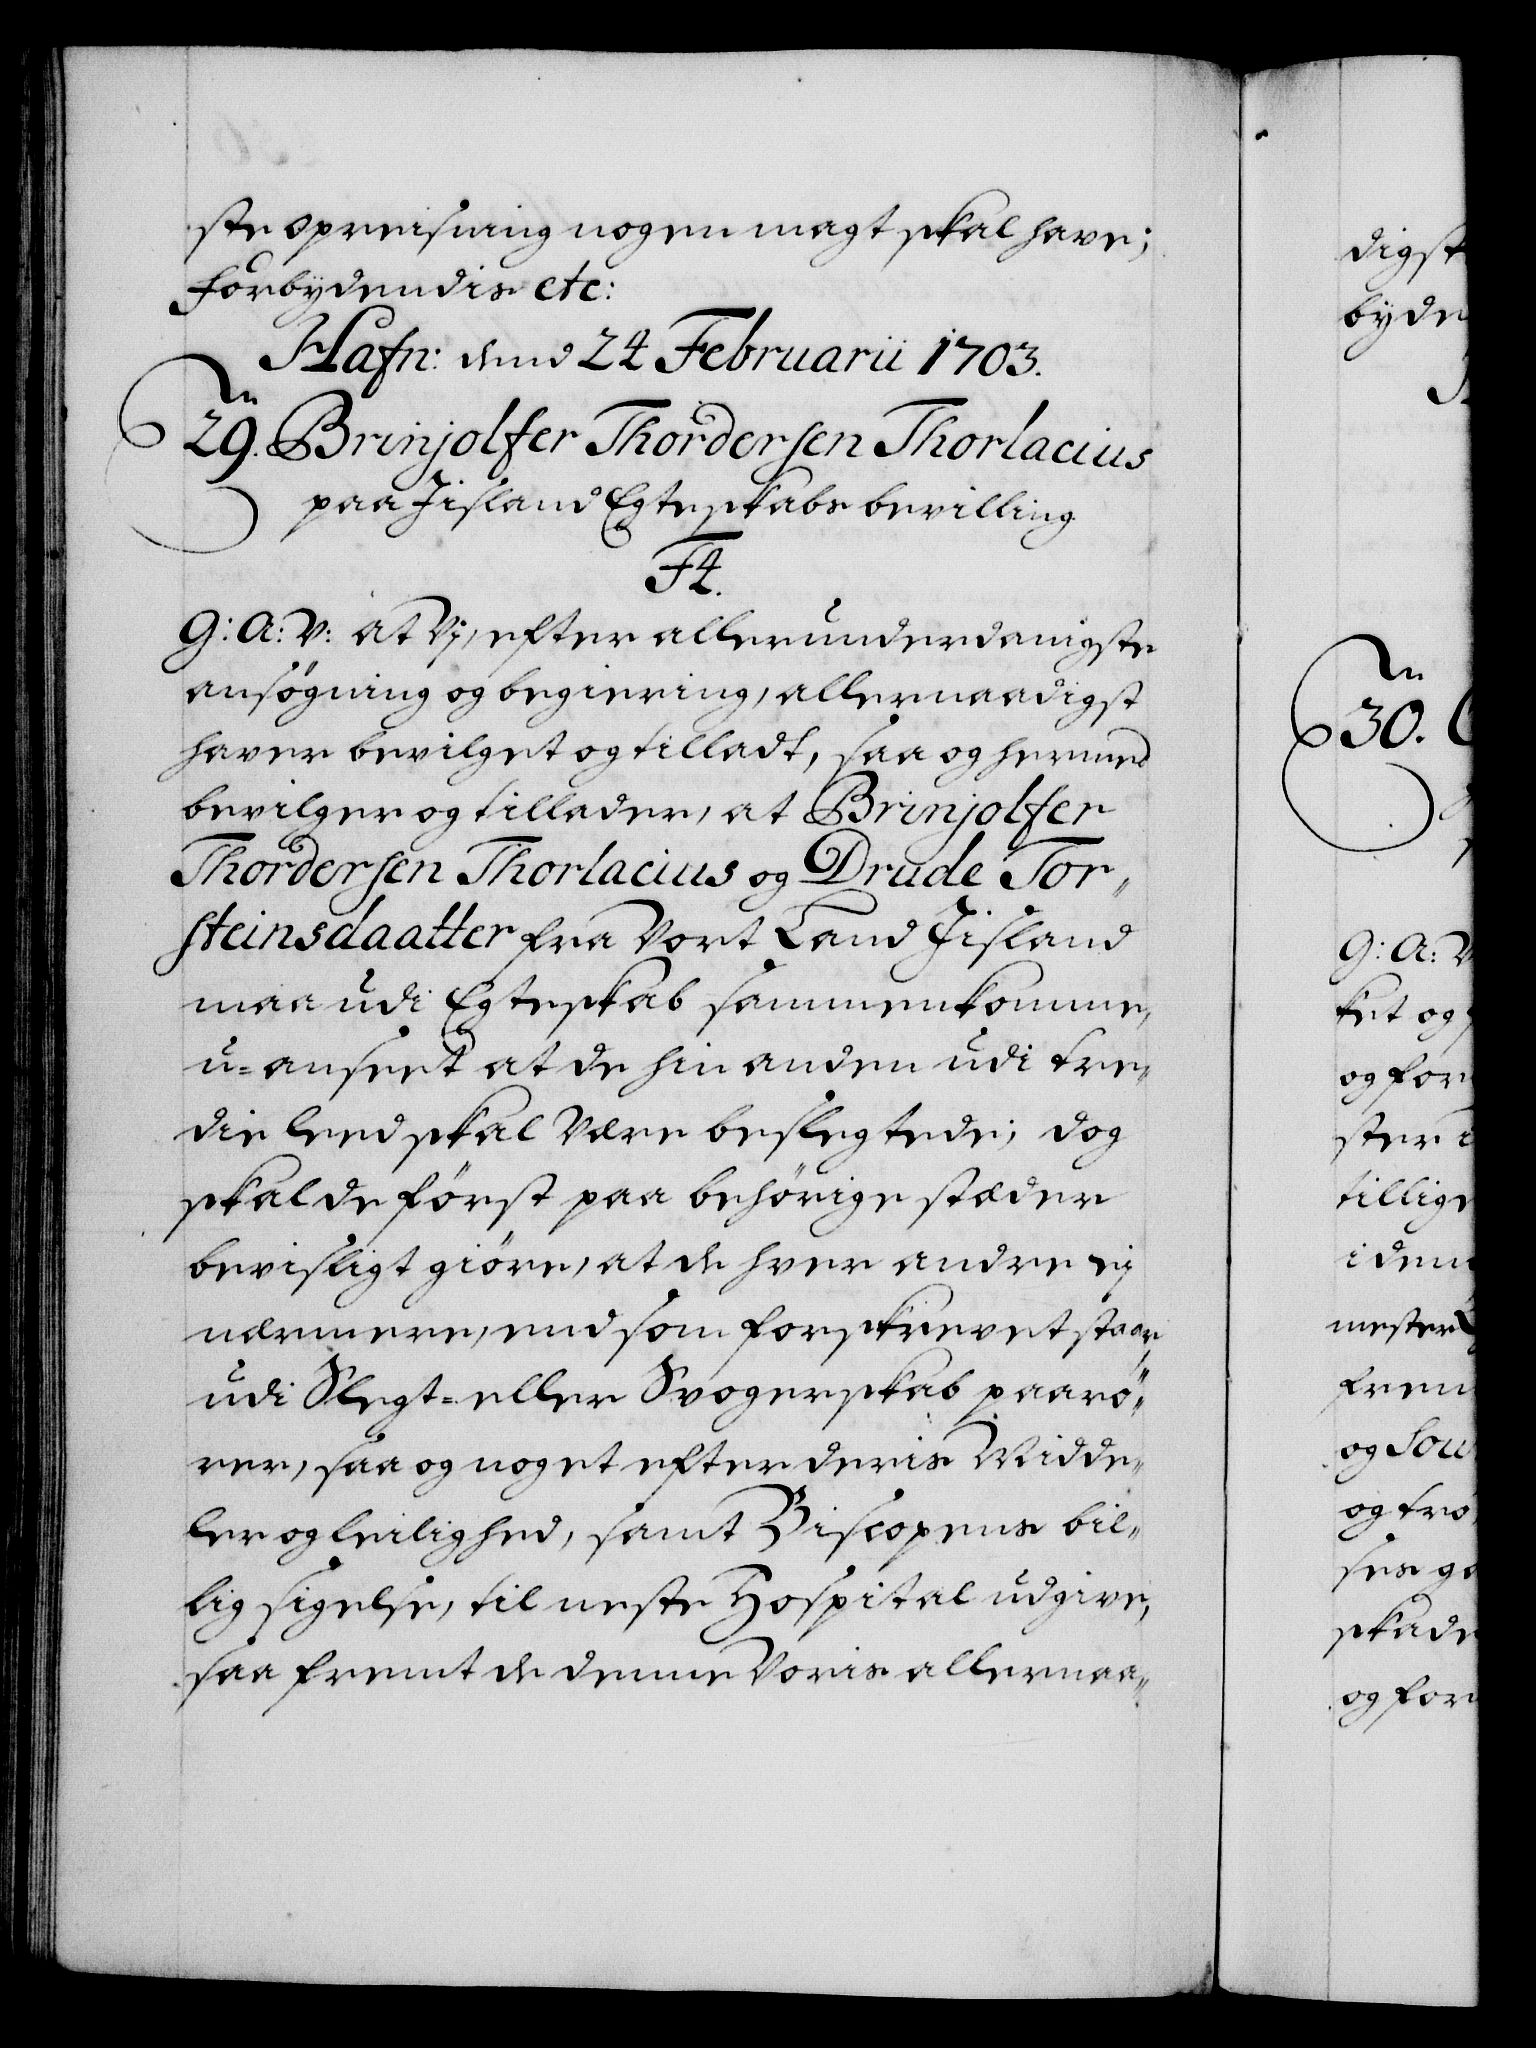 ste opreisning nogen magt skal have;
forbydendis etc:
Hafn: dend 24 Februarii 1703.
n
29. Brinjolfer Thordersen Thorlacius
paa Jisland Egteskabs bevilling
F4.
G: A: V: at Vj, efter allerunderdanigste
ansøgning og begiering, allernaadigst
haver bevilget og tilladt, saa og hermed
bevilger og tillader, at Brinjolfer
Thordersen Thorlacius og Drude Tor„
steinsdaatter fra Vort Land Jisland
maa udi Egteskab sammenkomme,
u=anseet at de hin anden udi tre„
die leed skal være beslegtede; dog
skal de først paa behørige stæder
bevisligt giøre, at de hver andre ej
nærmere, end som forskrevet staar,
udi Slegt= eller Svogerskab paarø„
rer, saa og noget efter deris Midde„
ler og leilighed, samt Biscopens bil„
lig sigelse, til neste Hospital udgive,
saa fremt de denne Voris allernaa„
digst
byde
n
30.
G: A: V
ket og
og for
ster
tillige
i den
mester
frem
og Sou
og tro
ses
skade
og for